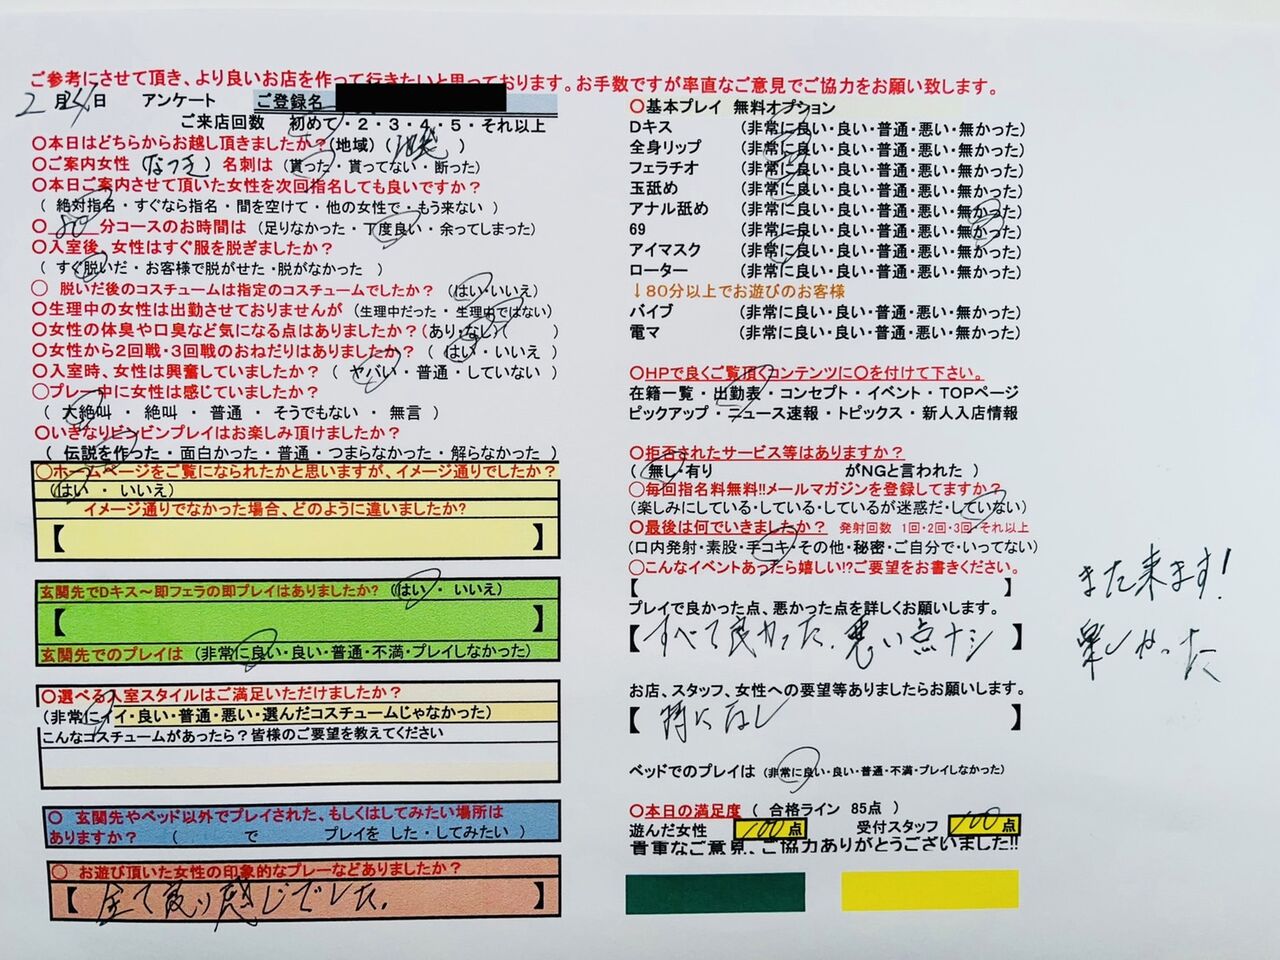 ご参考にさせて頂き、より良いお店を作って行きたいと思っております。お手数ですが率直なご意見でご協力をお願い致します。
2月24日 アンケート ご登録名
ご来店回数 初めて・2・3・4・5・それ以上
〇本日はどちらからお越し頂きましたか?(地域) ( )
〇ご案内女性 (なつき) 名刺は (貰った・貰ってない・断った)
〇本日ご案内させて頂いた女性を次回指名しても良いですか?
( 絶対指名・すぐなら指名・間を空けて・他の女性で・もう来ない )
〇 80 分コースのお時間は (足りなかった・丁度良い・余ってしまった)
〇入室後、女性はすぐ服を脱ぎましたか?
( すぐ脱いだ・お客様で脱がせた・脱がなかった )
〇 脱いだ後のコスチュームは指定のコスチュームでしたか? (はい・いいえ)
〇生理中の女性は出勤させておりませんが (生理中だった・生理中ではない)
〇女性の体臭や口臭など気になる点はありましたか?(あり・なし)( )
〇女性から2回戦・3回戦のおねだりはありましたか? ( はい・いいえ )
〇入室時、女性は興奮していましたか? ( ヤバい・普通・していない )
〇プレー中に女性は感じていましたか?
( 大絶叫 ・ 絶叫 ・ 普通 ・ そうでもない ・ 無言 )
〇いきなりビンビンプレイはお楽しみ頂けましたか?
( 伝説を作った・面白かった・普通・つまらなかった・解らなかった )
〇ホームページをご覧になられたかと思いますが、イメージ通りでしたか?
(はい ・ いいえ)
イメージ通りでなかった場合、どのように違いましたか?
【 】
玄関先でDキス～即フェラの即プレイはありましたか? (はい・ いいえ)
【 】
玄関先でのプレイは (非常に良い・良い・普通・不満・プレイしなかった)
〇選べる入室スタイルはご満足いただけましたか?
(非常にイイ・良い・普通・悪い・選んだコスチュームじゃなかった)
こんなコスチュームがあったら?皆様のご要望を教えてください
〇 玄関先やベッド以外でプレイされた、もしくはしてみたい場所は
ありますか? ( で プレイを した・してみたい )
〇 お遊び頂いた女性の印象的なプレーなどありましたか?
【 全て 感じでした. 】
〇基本プレイ 無料オプション
Dキス (非常に良い・良い・普通・悪い・無かった)
全身リップ (非常に良い・良い・普通・悪い・無かった)
フェラチオ (非常に良い・良い・普通・悪い・無かった)
玉舐め (非常に良い・良い・普通・悪い・無かった)
アナル舐め (非常に良い・良い・普通・悪い・無かった)
69 (非常に良い・良い・普通・悪い・無かった)
アイマスク (非常に良い・良い・普通・悪い・無かった)
ローター (非常に良い・良い・普通・悪い・無かった)
↓80分以上でお遊びのお客様
バイブ (非常に良い・良い・普通・悪い・無かった)
電マ (非常に良い・良い・普通・悪い・無かった)
〇HPで良くご覧頂くコンテンツに〇を付けて下さい。
在籍一覧・出勤表・コンセプト・イベント・TOPページ
ピックアップ・ニュース速報・トピックス・新人入店情報
〇拒否されたサービス等はありますか?
( 無し・有り がNGと言われた )
〇毎回指名料無料!!メールマガジンを登録してますか?
(楽しみにしている・している・しているが迷惑だ・していない)
〇最後は何でいきましたか? 発射回数 1回・2回・3回・それ以上
(口内発射・素股・手コキ・その他・秘密・ご自分で・いってない)
〇こんなイベントあったら嬉しい!?ご要望をお書きください。
【 】
プレイで良かった点、悪かった点を詳しくお願いします。
【 すべて良かった.悪い点ナシ 】
お店、スタッフ、女性への要望等ありましたらお願いします。
【 特になし 】
ベッドでのプレイは (非常に良い・良い・普通・不満・プレイしなかった)
〇本日の満足度 ( 合格ライン 85点 )
遊んだ女性 100点 受付スタッフ 100点
貴重なご意見、ご協力ありがとうございました!!
また来ます!
楽しかった